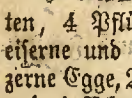 ten, 4 Pflü
eiserne und
zerne Egge, 2